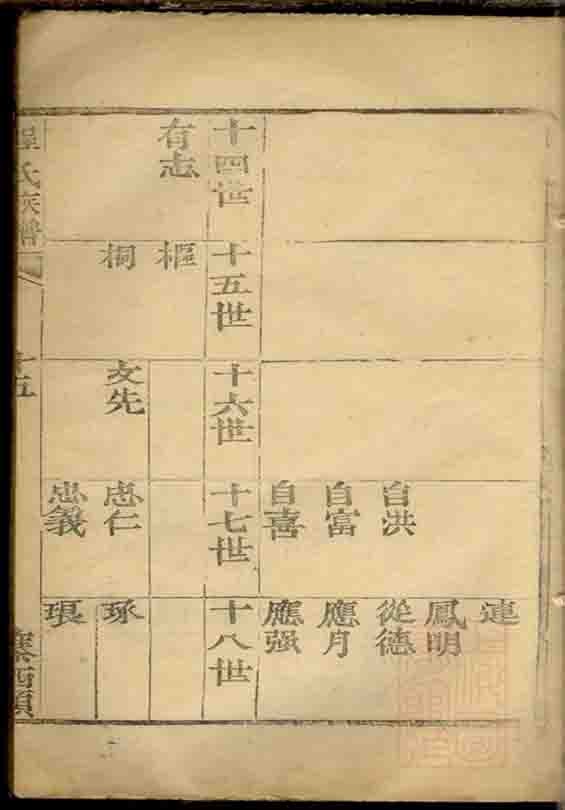 連
鳳明
自洪 從德
自富 應月
自喜 應强
十四世 十五世 十六世 十七世 十八世
有志 樞
桐 文先 忠仁 琢
忠義
氏族譜 十五 西頭